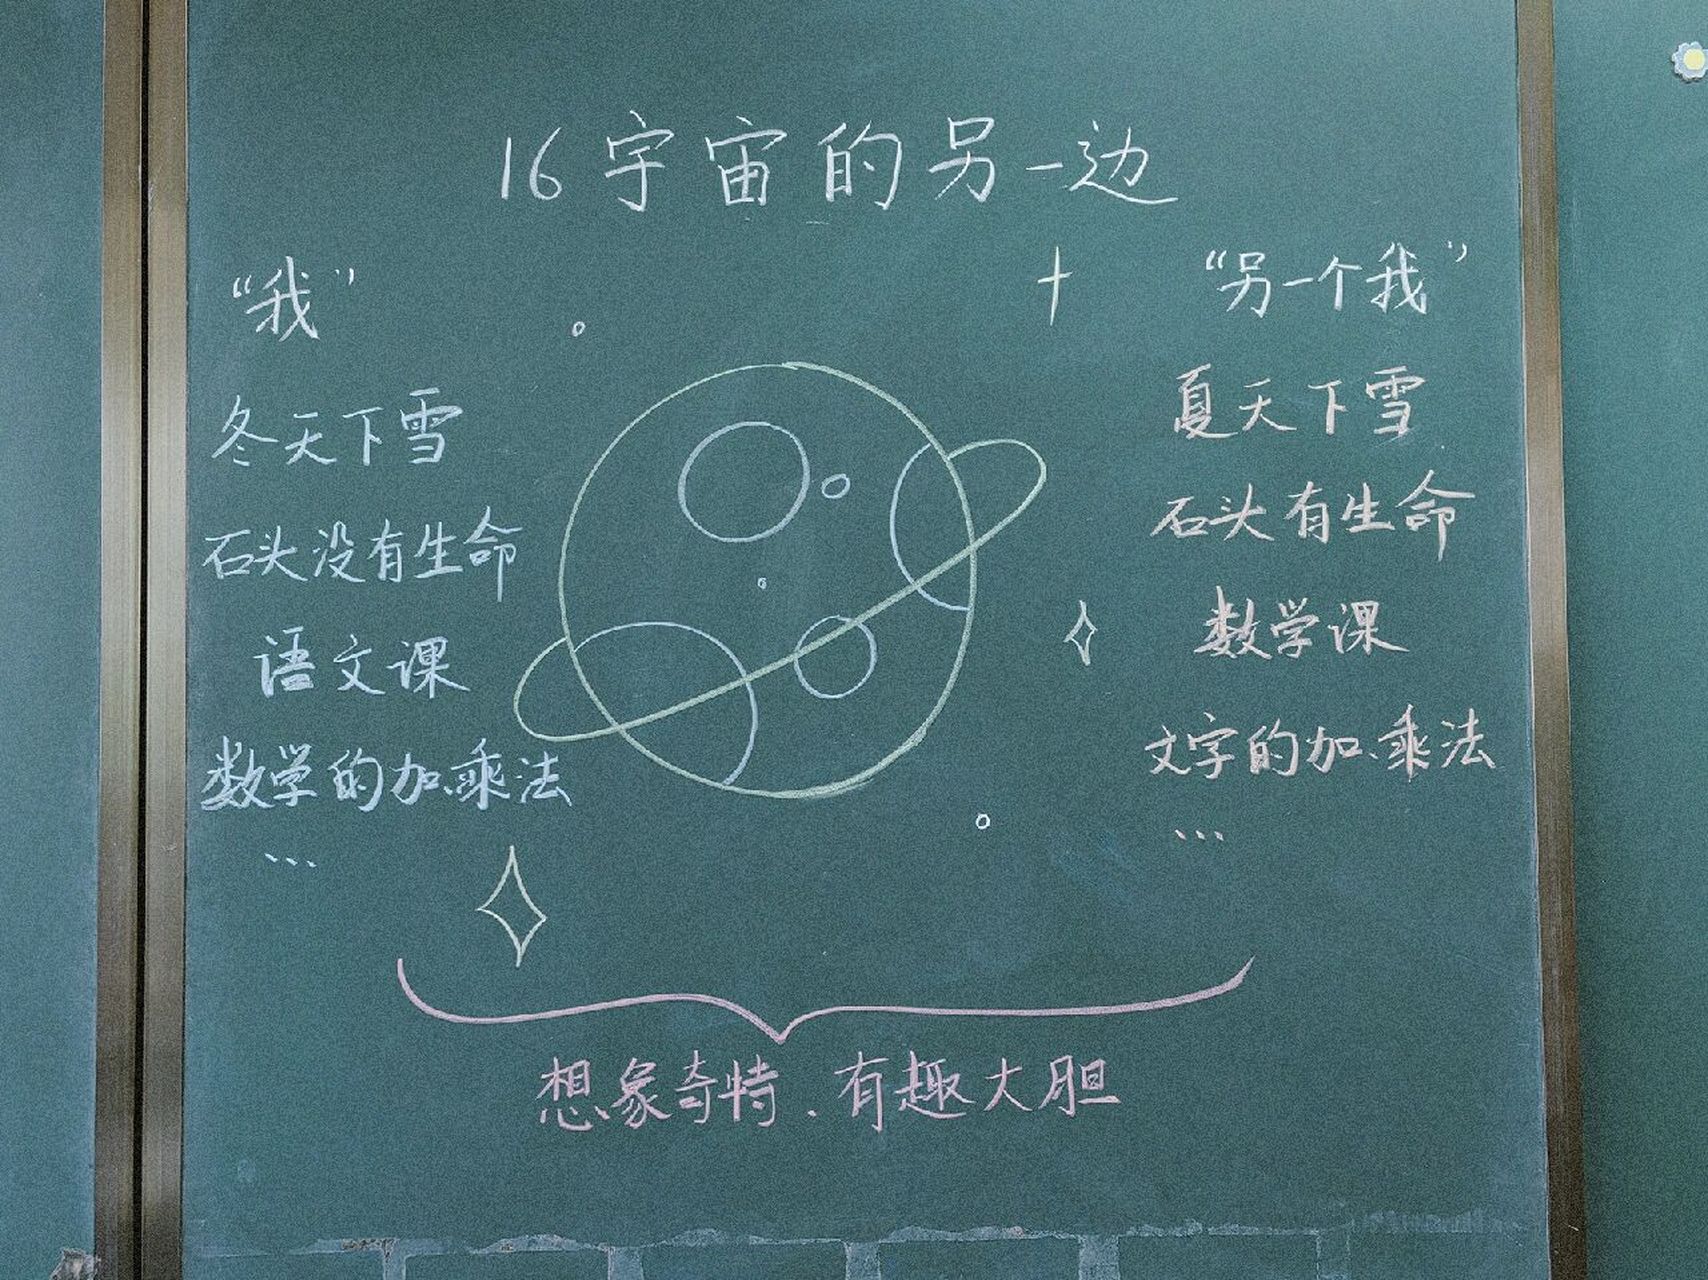 16 宇宙的另一边
“我”
冬天下雪
石头没有生命
语文课
数学的加、乘法
...
“另一个我”
夏天下雪
石头有生命
数学课
文字的加、乘法
...
想象奇特、有趣大胆